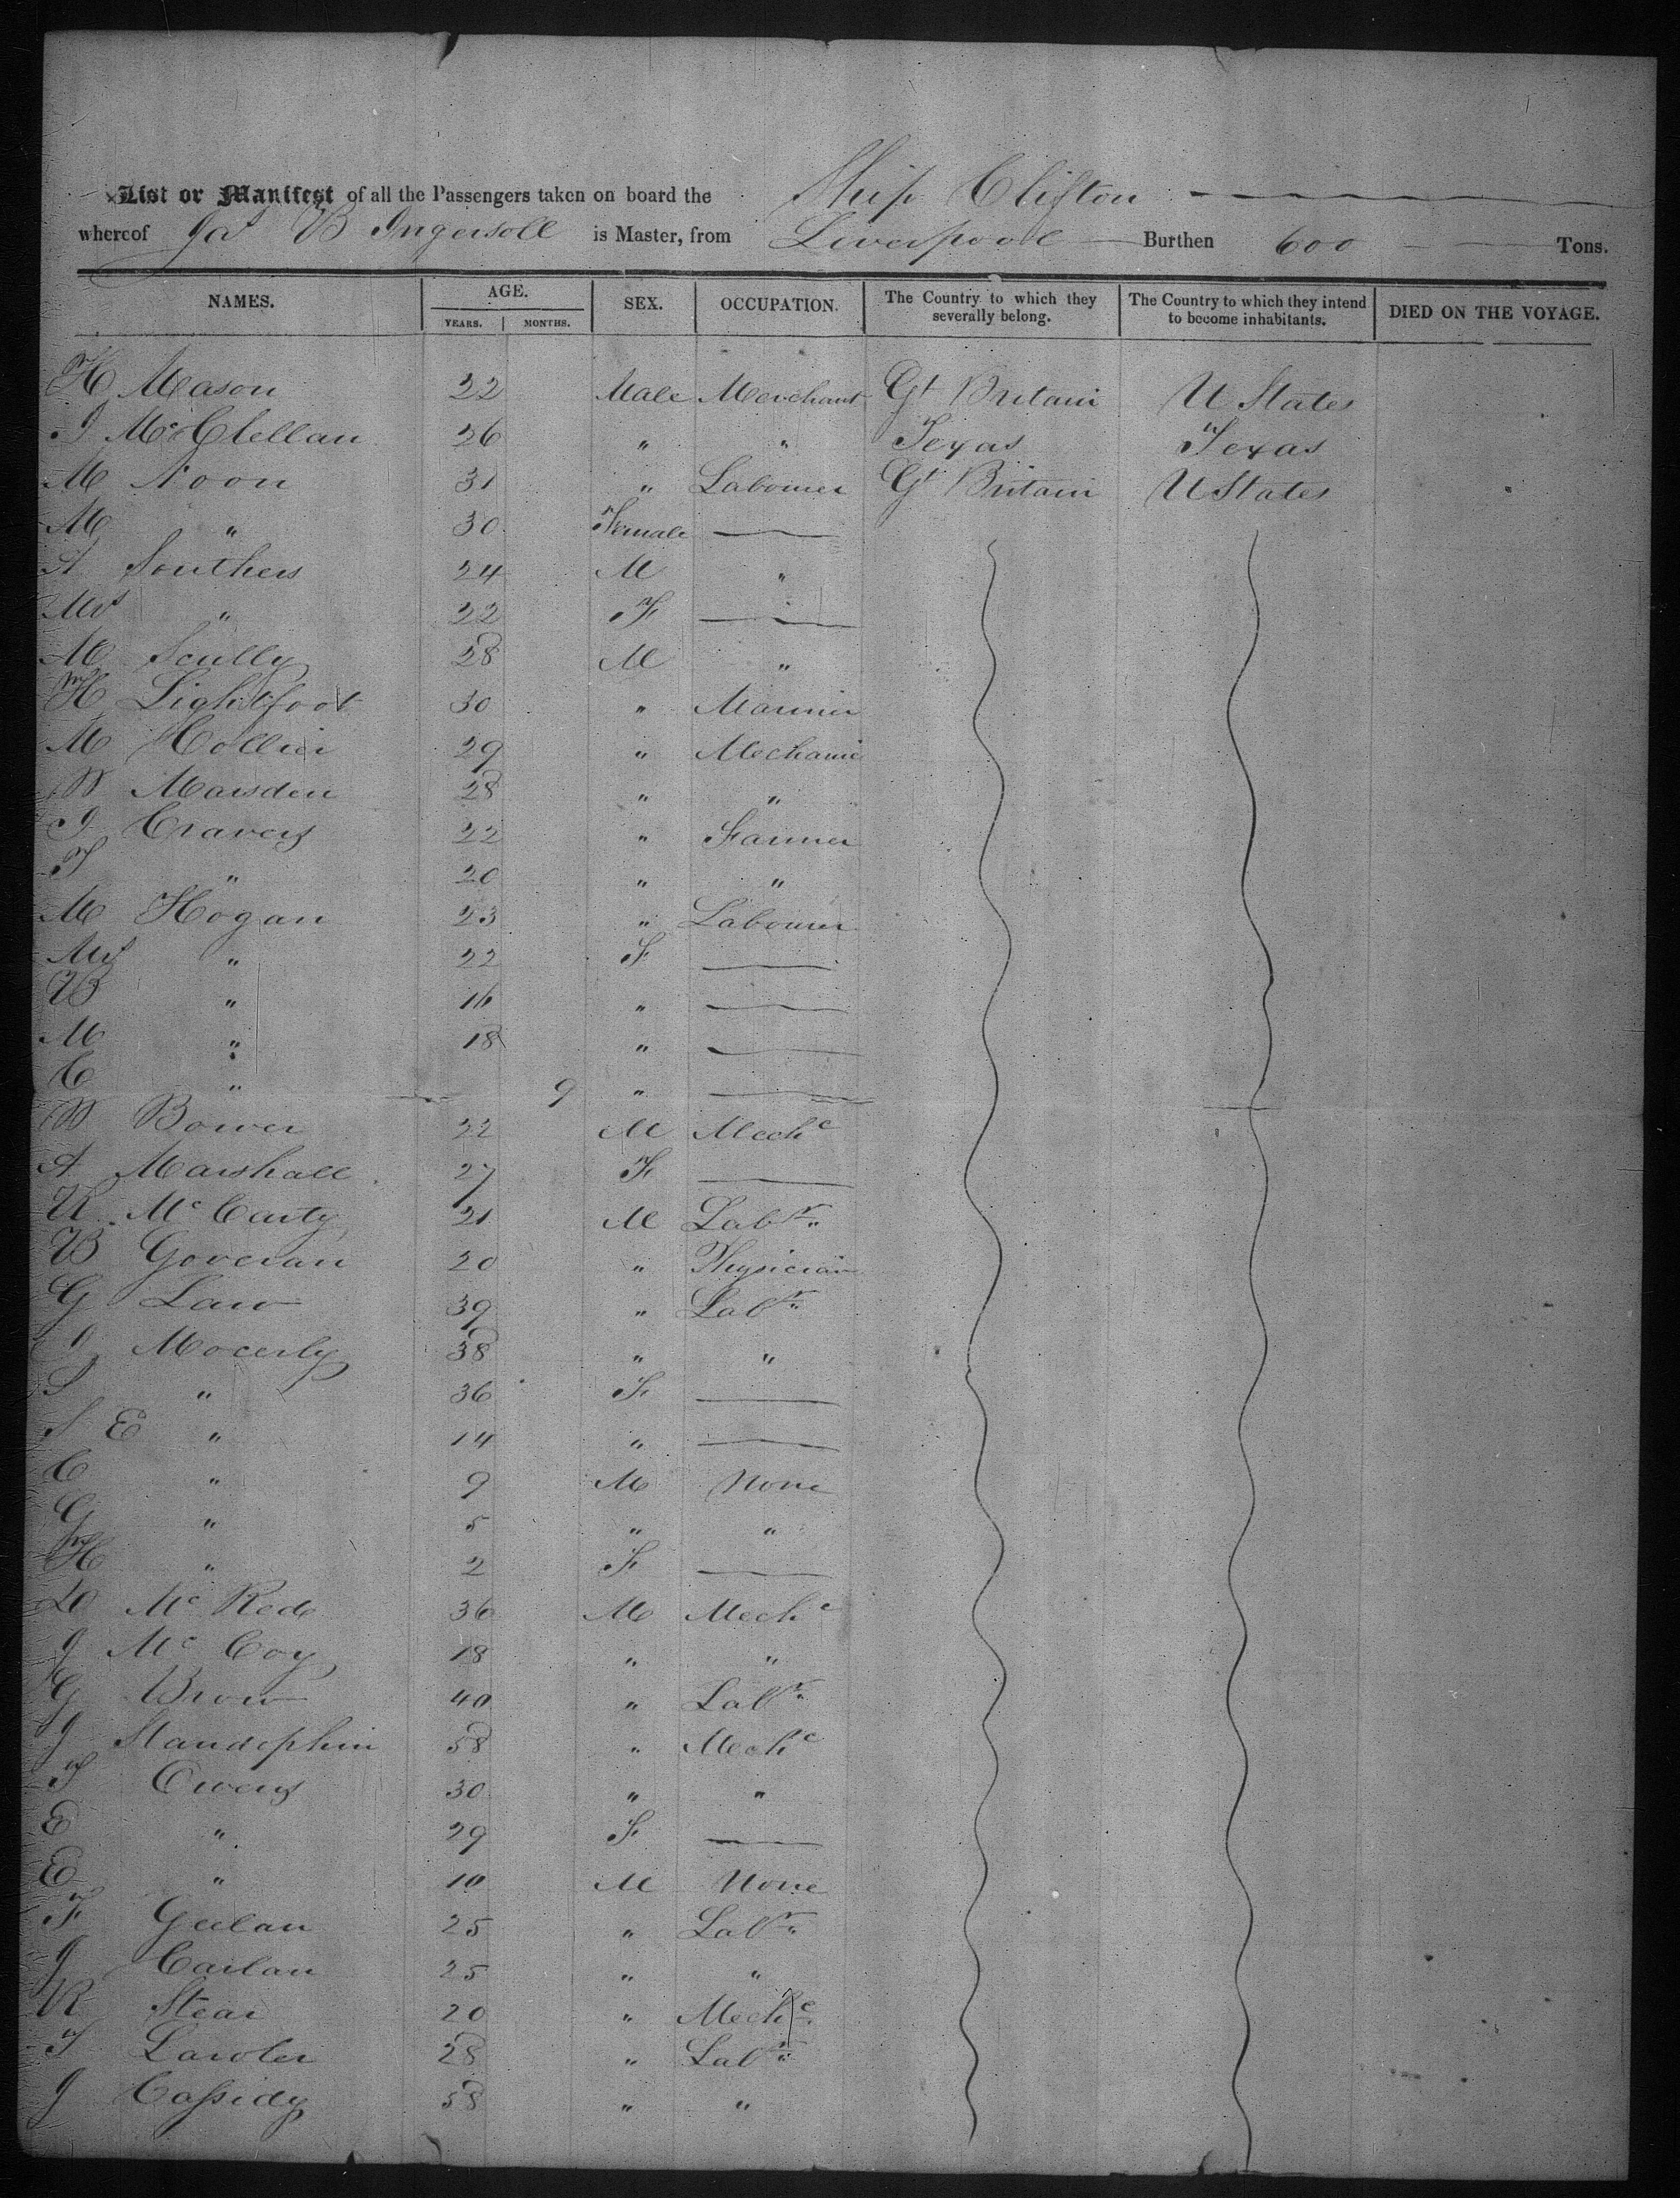 List or Manifest of all the Passengers taken on board the Ship Clifton
whereof Jas B Ingersoll is Master, from Liverpool Burthen 600 Tons.
NAMES. AGE. SEX. OCCUPATION. The Country to which they severally belong. The Country to which they intend to become inhabitants. DIED ON THE VOYAGE.
YEARS. MONTHS.
H Mason 22 Male Merchant Gt Britain U States
J McClellan 26 " " Texas Texas
M Noon 31 " Labourer Gt Britain U States
M " 30 Female —
A Southers 24 M "
Mrs " 22 F —
M Scully 28 M "
H Lightfoot 30 " Mariner
M Collier 29 " Mechanic
W Marsden 28 " "
J Cravens 22 " Farmer
T " 20 " "
M Hogan 23 " Labourer
Mrs " 22 F —
B " 16 " —
M " 18 " —
C " 9 " —
W Bower 22 M Mechc
A Marshall 27 F —
McCarty 21 M Labr
B Goveran 20 " Physician
G Law 39 " Labr
Mocerly 38 " "
S " 36 F —
S E " 14 " —
C " 9 M None
G " 5 " "
H " 2 F —
D McRede 36 M Mechc
J McCoy 18 " "
G Brow 40 " Labr
J Standephin 58 " Mechc
T Owens 30 " "
E " 29 F —
E " 10 M None
F Geelan 25 " Labr
J Carlan 25 " "
R Stear 20 " Mechc
T Lawler 28 " Labr
J Cassidy 58 " "